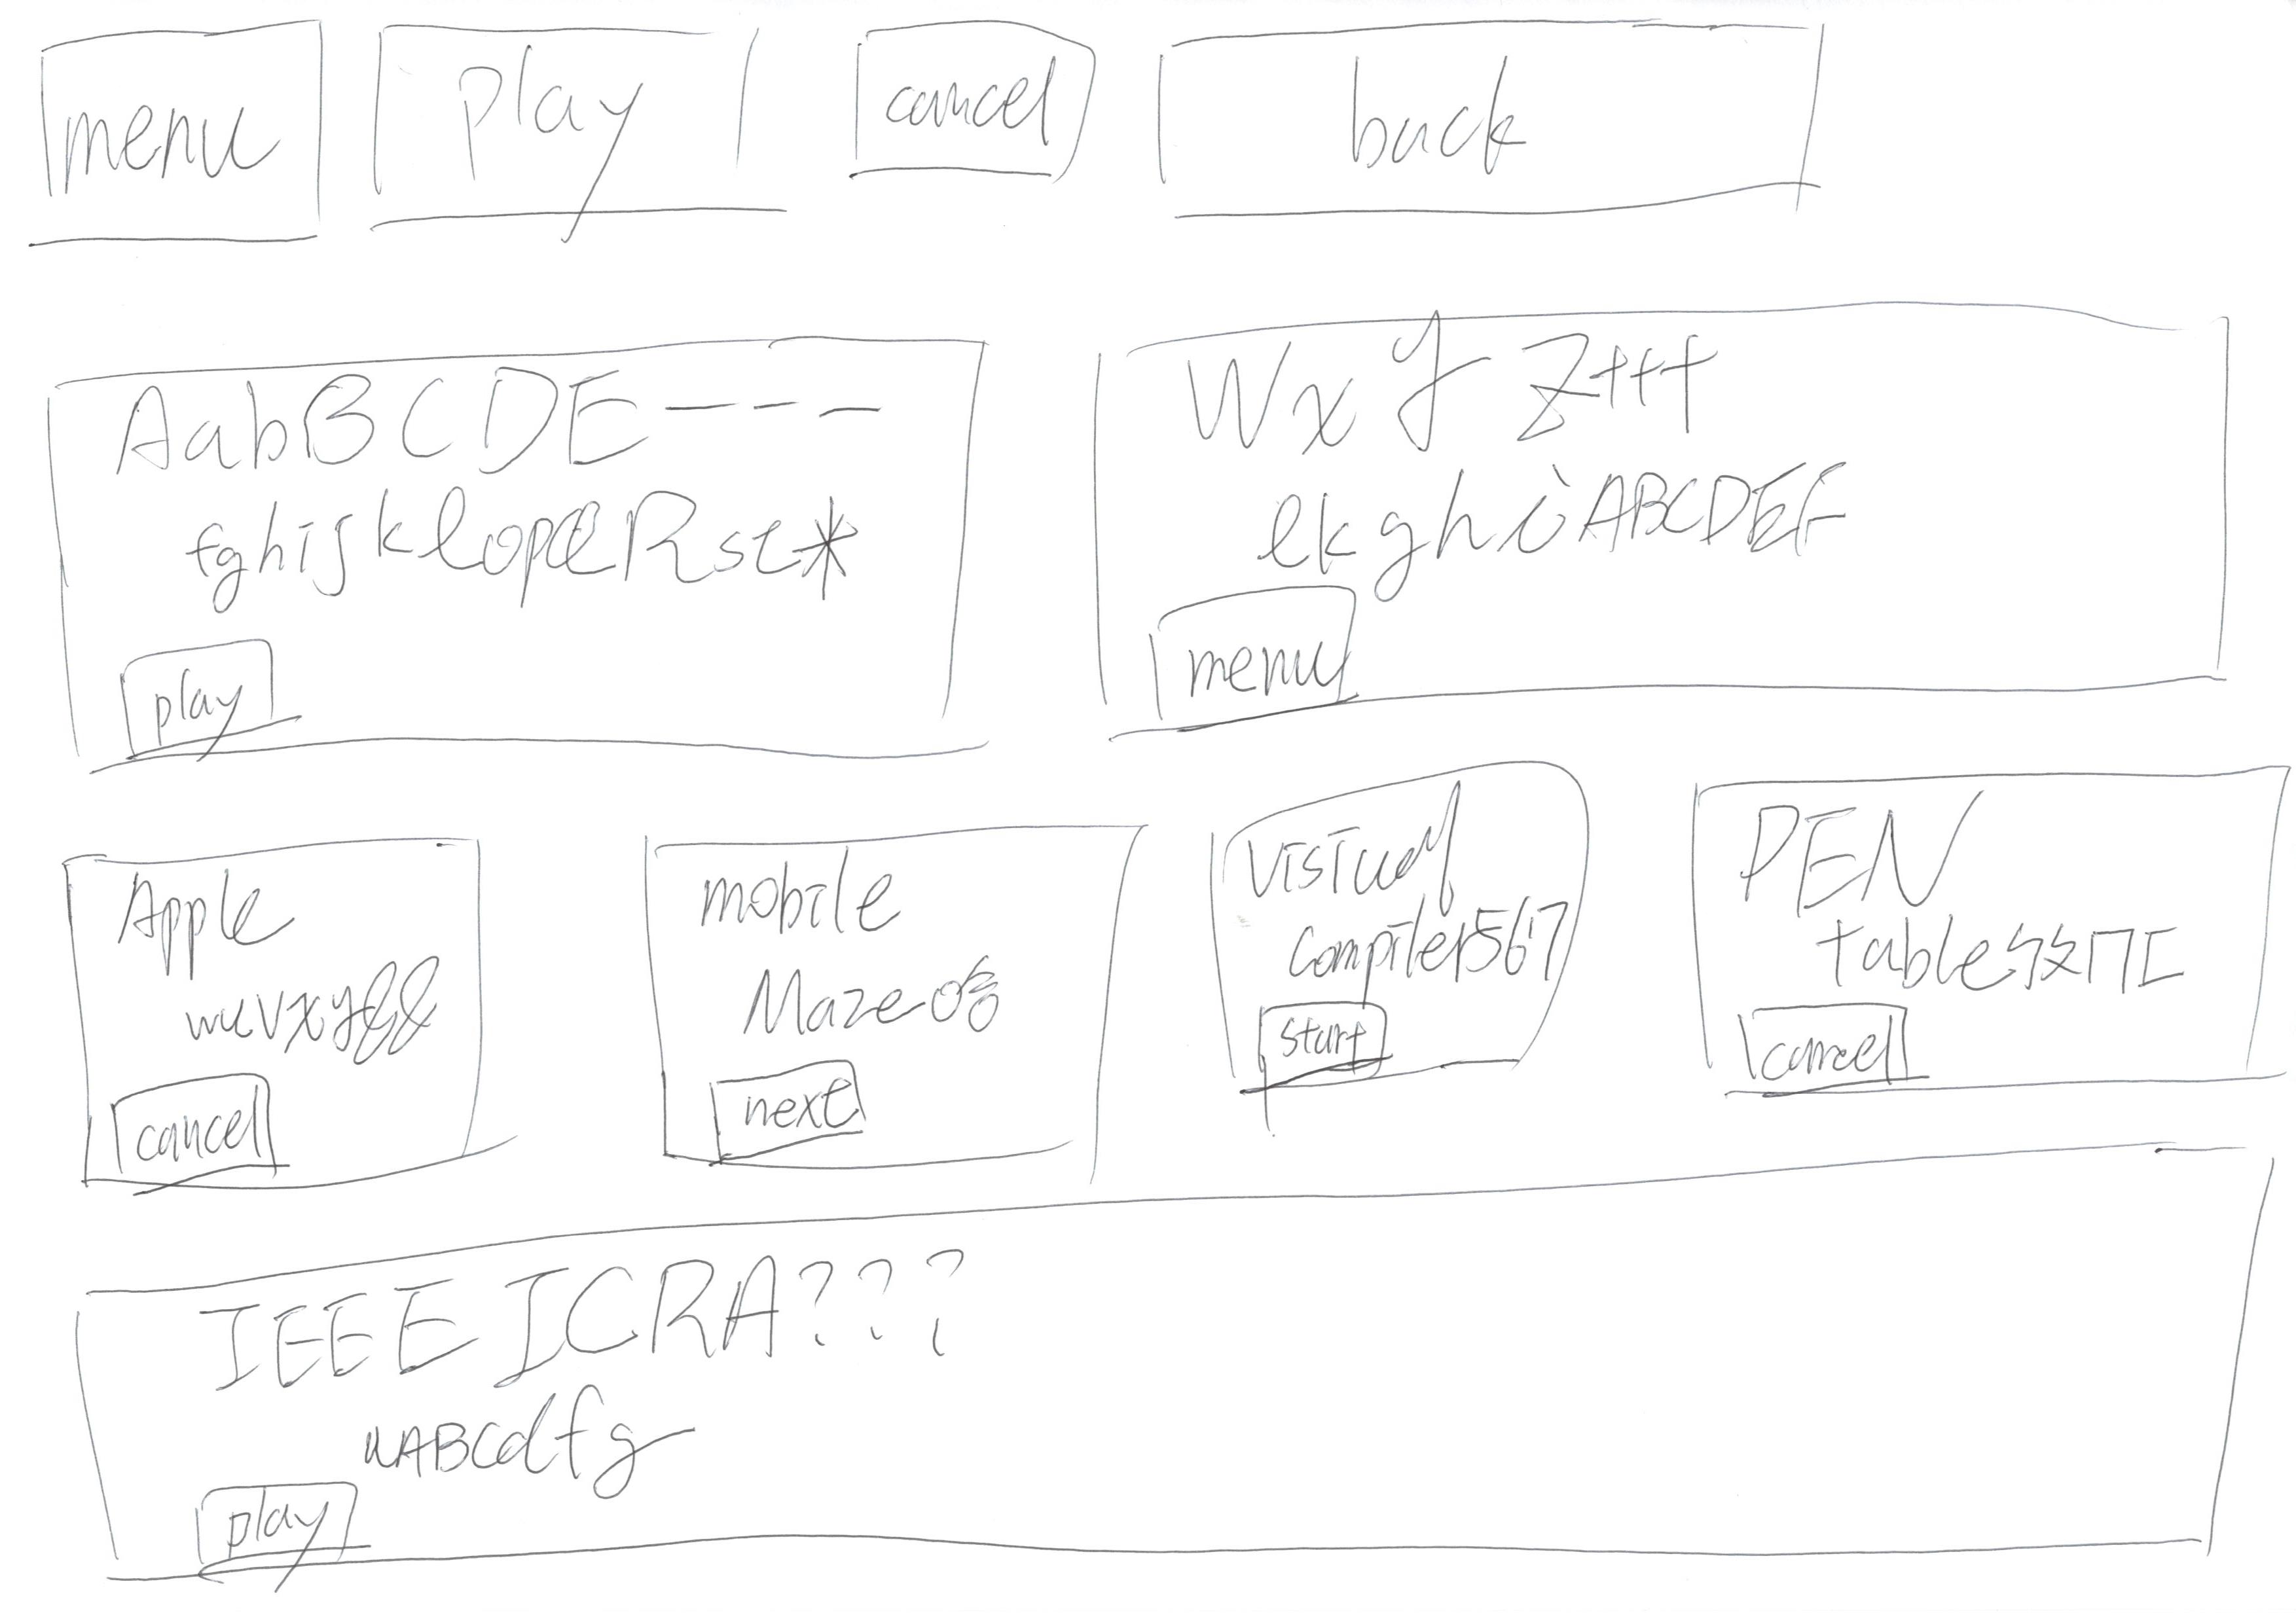 menu
play
cancel
back
AabBCDE----
fghijkl
play
Wxyz+++
ekghiABCDEF
menu
Apple
cancel
mobile
Maze
next
visual
compiler567
start
PEN
table
cancel
IEEE ICRA???
uABCdfg
play